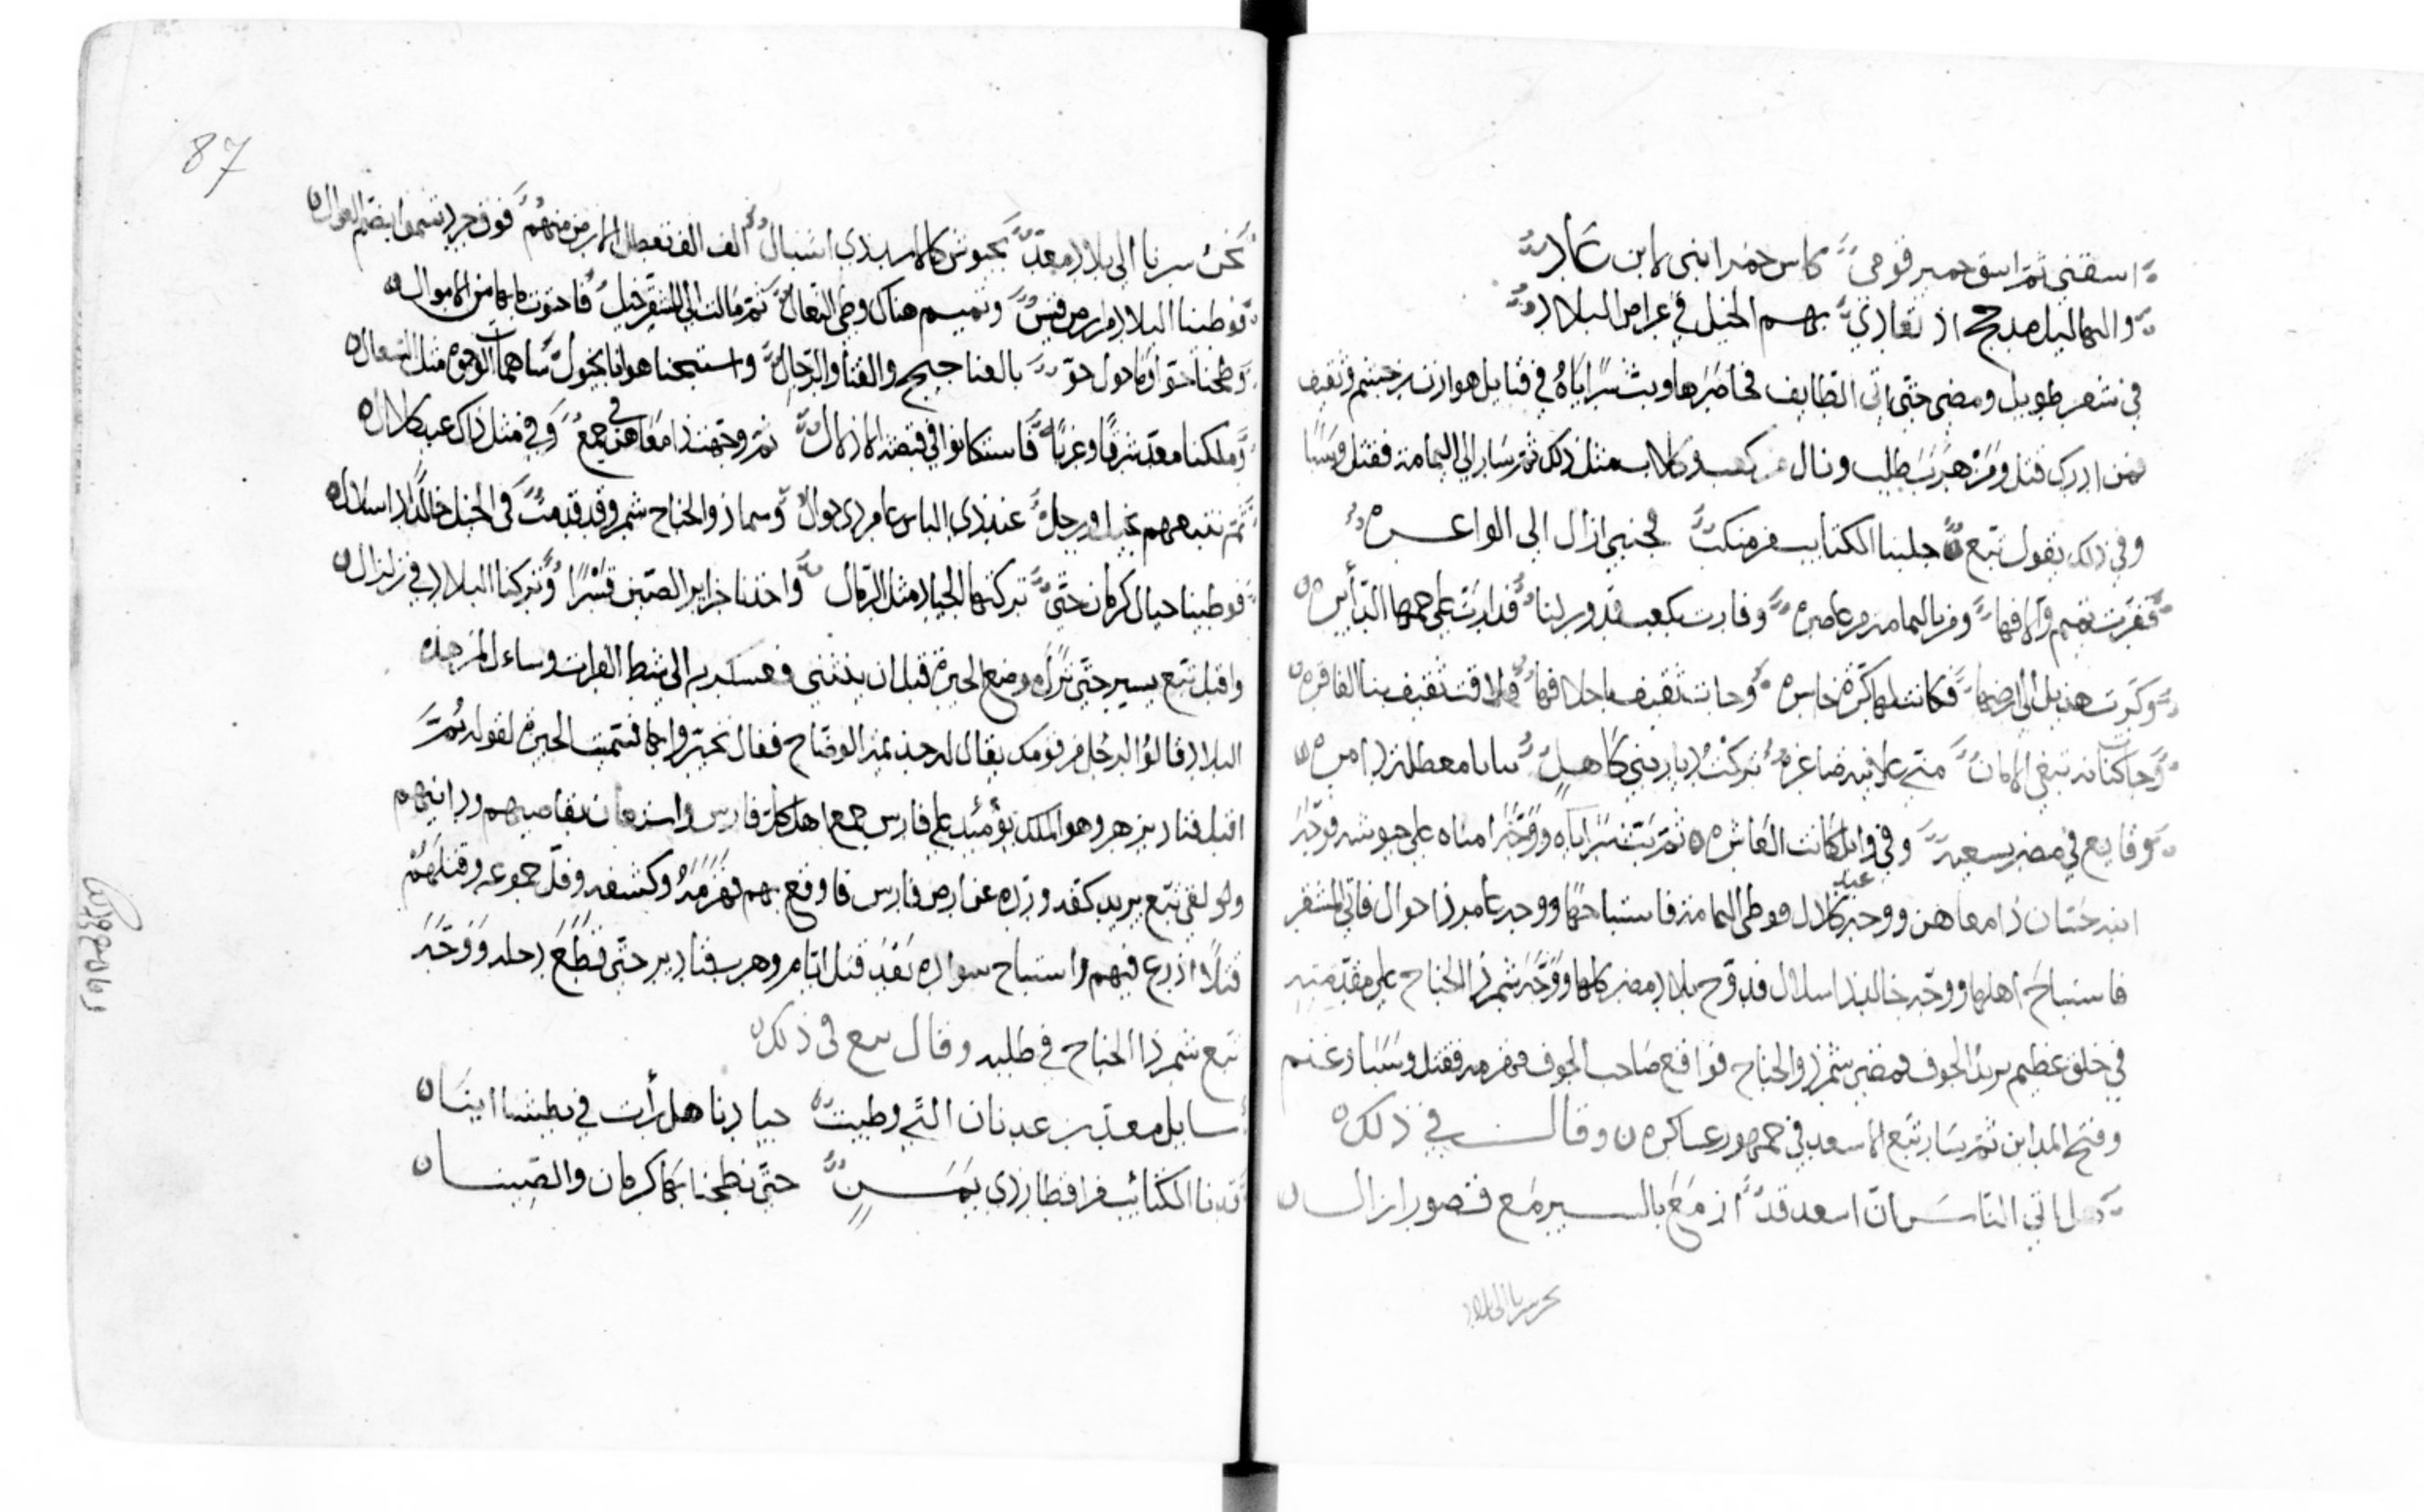 اسقني ثم اسق حمير قومي كاس خمر انني لابن عاد
والبهاليل مذحج اذ تعادي بهم الخيل في عراص البلاد
في شعر طويل ومضى حتى اتى الطايف فحاصرها وبث سراياه في قبايل هوازن خيثم وثقيف
فمن ادرك قتل ومن هرب طلب ونال كعب وكلاب مثل ذلك ثم سار الى اليمامة فقتل وسبا
وفي ذلك يقول تبع جلبنا الكتايب من منكث فجنبي ازال الى الواعره
ففرت تميم والافها وفر باليمامة من عامره وفارت بكعب قدور لنا فدارت على جمعها الدايره
وكرت هذيل الى ارضها فكانت لها كرة خاسره وجات ثقيف باحلافها فلاقت ثقيف بنا الفاقره
وجات كنانة تبغي الامان متى علا فيه صاغره تركت ديار بني كاهل معطلة دامره
وقايع في مضر بسعيه وفي وايل كانت العاشره ثم بث سراياه ووجه امناه على جيوشه فوجه
ابنه حسان ذا معاهن ووجه عبد كلال فوطي اليمامة فاستباحها ووجه عامر ذا حوال فاتى المشقر
فاستباح اهلها ووجه خالد ذا اسلال فدوخ بلاد مضر كلها ووجه شمر ذا الجناح على مقدمته
في خلق عظيم يريد الجوف فمضى شمر ذو الجناح فواقع صاحب الجوف فهزمه فقتل وسبا وغنم
وفتح المداين ثم سار تبع الاسعد في جمهور عساكره وقال في ذلك
هل اتى الناس ان اسعد قد ازمع بالسير مع قصور ازال
نحن سرنا الى بلاد
87
نحن سرنا الى بلاد معد بجيوش كالاسد ذي اشبال الف الف تعطل الارض منهم فوق جرد
فوطينا البلاد من ارض قيس وتميم هناك وطي النعال ثم مالت الى المشقر خيل فاحتوت ما بها من الاموال
وطحنا جوا وما حول جو بالعناجيج والقنا والرجال واستبحنا هوانا بخيول ساهمات الوجوه مثل السعال
وملكنا معد شرقا وغربا فاستكانوا في قبضة الاذلال ثم وجهت ذا معاهن في جمع وفي مثل ذاك عبد كلال
ثم نتبعهم بخيل ورجل عند ذي الباس عامر ذي حوال وسما ذو الجناح شمر وقد قدمت في الخيل خالدا ذا اسلال
فوطينا جبال كرمان حتى تركتها الجياد مثل الرمال واخذنا خراير الصين قسرا وتركنا البلاد في زلزال
واقبل تبع يسير حتى نزل موضع الحيرة قبل ان يبتني فعسكر به الى شط الفرات وساءل المن هذه
البلاد قالوا لرجل من قومك يقال له جذيمة الوضاح فقال تحيروا بها فسميت الحيرة لقوله ثم
اقبل قباد بن هر وهو الملك يوميذ على فارس جمع اهل كل فارس بقاصيهم ودانيهم
ولولقي تبع يريد كفه ورده عن ارض فارس فاوقع بهم فهزمه وكشفه وفل جموعه وقتلهم
قتلا اذرع فيهم واستباح سواده بعد قتل ايام وهرب قباد حتى قطع دجله ووجه
تبع شمر ذا الجناح في طلبه وقال تبع في ذلك
سايل معد بن عدنان التي وطيت جيادنا هل رأت في بطشنا اينا
قدنا الكتايب من اقطار ذي يمن حتى نطحنا بها كرمان والصينا